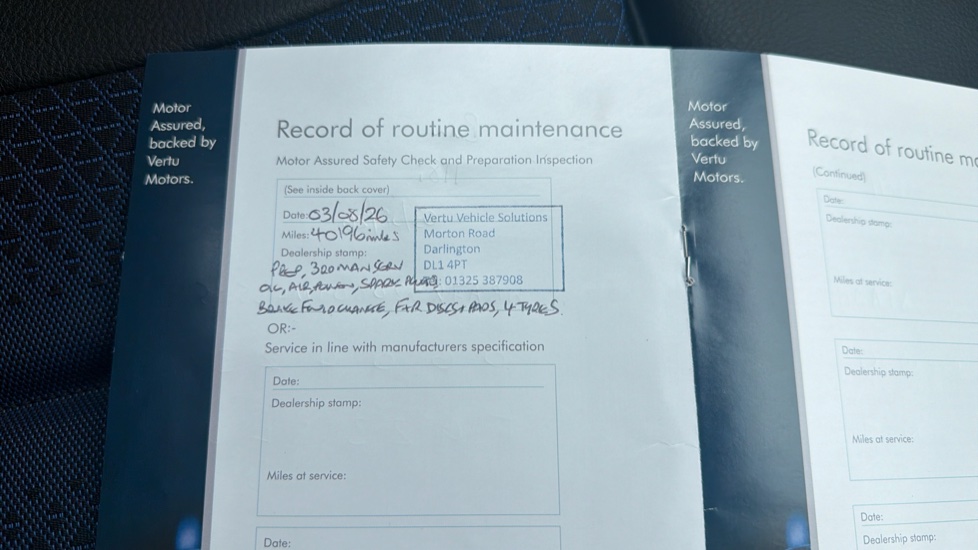 Motor
Assured,
backed by
Vertu
Motors.
Record of routine maintenance
Motor Assured Safety Check and Preparation Inspection
(See inside back cover)
Date: 03/08/26
Miles: 40196 miles
Dealership stamp:
Vertu Vehicle Solutions
Morton Road
Darlington
DL1 4PT
: 01325 387908
PREP, 3RD MAN SERV
OIL, AIR, POLLEN, SPARK PLUGS
BRAKE FLUID CHANGE, F+R DISCS + PADS, 4 TYRES.
OR:-
Service in line with manufacturers specification
Date:
Dealership stamp:
Miles at service:
Date:
Motor
Assured,
backed by
Vertu
Motors.
Record of routine
(Continued)
Date:
Dealership stamp:
Miles at service:
Date:
Dealership stamp:
Miles at service:
Date:
Dealership stamp: